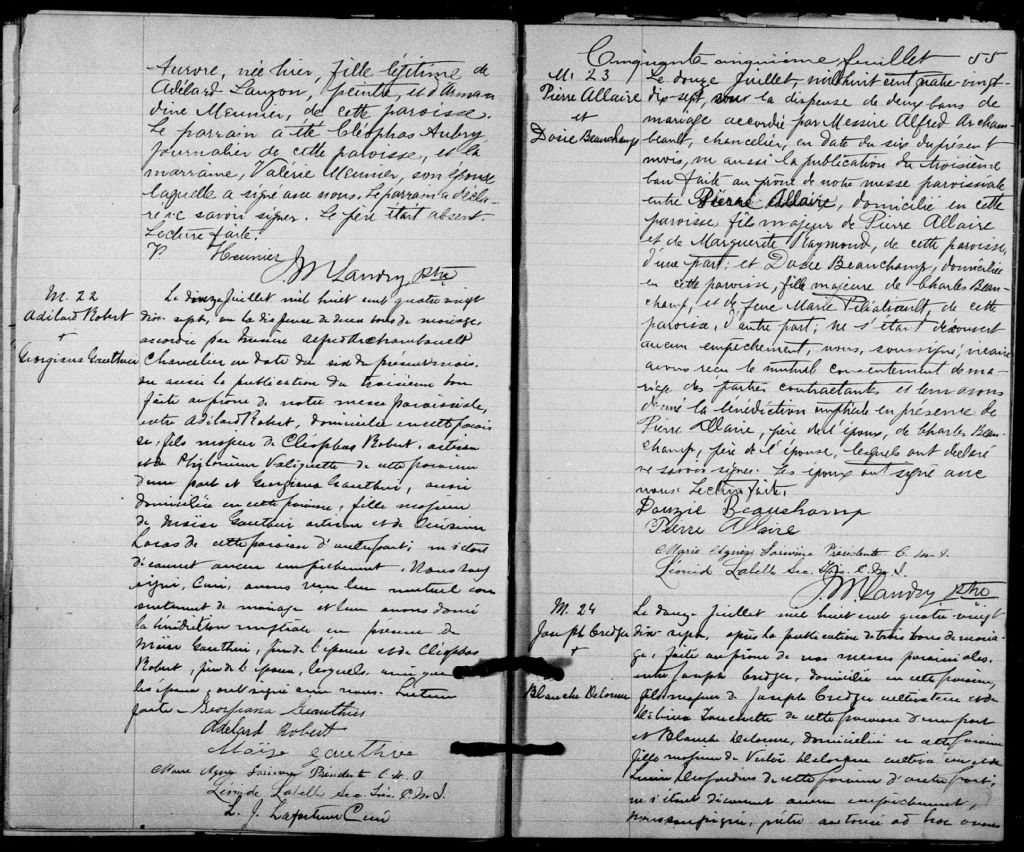 Aurore, née hier, fille légitime de
Adélard Lauzon, peintre, et d'Aman
dine Meunier, de cette paroisse.
Le parrain a été Cléophas Aubry
journalier de cette paroisse, et la
marraine, Valérie Meunier, son épouse
laquelle a signé avec nous. Le parrain a décla
ré ne savoir signer. Le père était absent.
Lecture faite.
V Meunier
J M Landry Ptre
M. 22
Adélard Robert
+
Georgiana Gauthier
Le douze Juillet mil huit cent quatre vingt
dix sept, vu la dispense de deux bans de mariage,
accordée par Messire Alfred Archambault
Chancelier en date du six du présent mois.
vu aussi la publication du troisième ban
faite au prône de notre messe paroissiale,
entre Adélard Robert, domicilié en cette parois
se, fils majeur de Cléophas Robert, artisan
et de Philomène Valiquette de cette paroisse
d'une part et Georgiana Gauthier, aussi
domiciliée en cette paroisse, fille majeure
de Moïse Gauthier artisan et de
Lucas de cette paroisse d'autre part; ne s'étant
découvert aucun empêchement, Nous sous
signé, Curé, avons reçu leur mutuel con
sentement de mariage et leur avons donné
la bénédiction nuptiale en présence de
Moïse Gauthier, père de l'épouse et de Cléophas
Robert, père de l'époux, lesquels ainsi que
les époux, ont signé avec nous. Lecture
faite –
Georgiana Gauthier
Adelard Robert
Moïse gauthier
Marie Agnès Présidente C. M. S.
Léonide Labelle Sec. Trés. C. M. S.
L. J. Lafortune Curé
Cinquante cinquième feuillet 55
M. 23
Pierre Allaire
et
Dosie Beauchamp
Le douze Juillet, mil huit cent quatre-vingt-
dix-sept, vu la dispense de deux bans de
mariage accordée par Messire Alfred Archam-
beault, chancelier, en date du six du présent
mois, vu aussi la publication du troisième
ban faite au prône de notre messe paroissiale
entre Pierre Allaire, domicilié en cette
paroisse, fils majeur de Pierre Allaire
et de Marguerite Raymond, de cette paroisse,
d'une part; et Dosie Beauchamp, domiciliée
en cette paroisse, fille majeure de Charles Beau-
champ, et de feue Marie de cette
paroisse, d'autre part; ne s'étant découvert
aucun empêchement, nous, soussigné, vicaire
avons reçu le mutuel consentement de ma-
riage des parties contractantes et leur avons
donné la bénédiction nuptiale en présence de
Pierre Allaire, père de l'époux, de Charles Beau-
champ, père de l'épouse, lesquels ont déclaré
ne savoir signer. Les époux ont signé avec
nous. Lecture faite.
Douzie Beauchamp
Pierre Allaire
Marie Agnès Présidente C. M. S.
Léonide Labelle Sec. Trés. C. M. S.
J. M. Landry Ptre
M. 24
Joseph Credger
+
Blanche Delorme
Le douze Juillet mil huit cent quatre vingt
dix sept, après la publication de trois bans de maria-
ge, faite au prône de nos messes paroissiales,
entre Joseph Credger, domicilié en cette paroisse,
fils majeur de Joseph Credger cultivateur et de
de cette paroisse d'une part
et Blanche Delorme, domiciliée en cette paroisse
fille mineure de Victor Delorme cultivateur et de
Desjardins de cette paroisse d'autre part;
ne s'étant découvert aucun empêchement,
nous soussigné, prêtre autorisé ad hoc avons